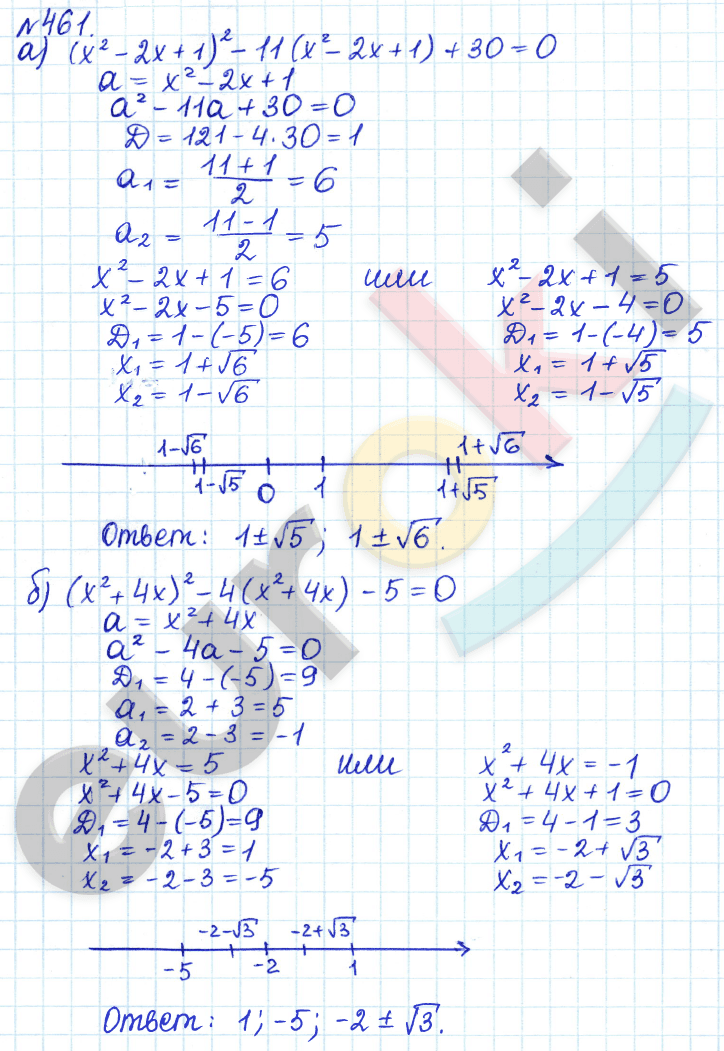 №461.
а) (x² - 2x + 1)² - 11(x² - 2x + 1) + 30 = 0
a = x² - 2x + 1
a² - 11a + 30 = 0
D = 121 - 4·30 = 1
a₁ = (11 + 1)/2 = 6
a₂ = (11 - 1)/2 = 5
x² - 2x + 1 = 6 или x² - 2x + 1 = 5
x² - 2x - 5 = 0 x² - 2x - 4 = 0
D₁ = 1 - (-5) = 6 D₁ = 1 - (-4) = 5
x₁ = 1 + √6 x₁ = 1 + √5
x₂ = 1 - √6 x₂ = 1 - √5
1-√6 1+√6
1-√5 0 1 1+√5
Ответ: 1 ± √5; 1 ± √6.
б) (x² + 4x)² - 4(x² + 4x) - 5 = 0
a = x² + 4x
a² - 4a - 5 = 0
D₁ = 4 - (-5) = 9
a₁ = 2 + 3 = 5
a₂ = 2 - 3 = -1
x² + 4x = 5 или x² + 4x = -1
x² + 4x - 5 = 0 x² + 4x + 1 = 0
D₁ = 4 - (-5) = 9 D₁ = 4 - 1 = 3
x₁ = -2 + 3 = 1 x₁ = -2 + √3
x₂ = -2 - 3 = -5 x₂ = -2 - √3
-2-√3 -2+√3
-5 -2 1
Ответ: 1; -5; -2 ± √3.
euroki